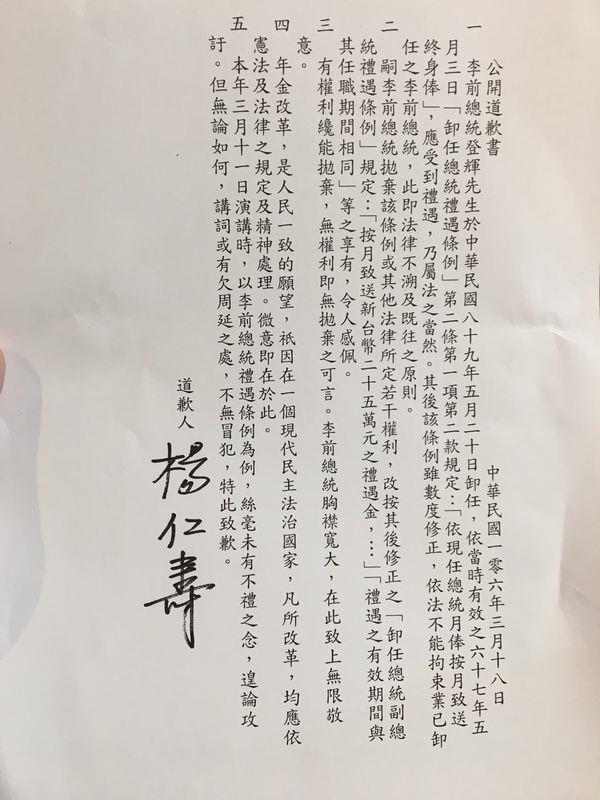 公開道歉書
中華民國一零六年三月十八日
一 李前總統登輝先生於中華民國八十九年五月二十日卸任，依當時有效之六十七年五
月三日「卸任總統禮遇條例」第二條第一項第二款規定：「依現任總統月俸按月致送
終身俸」，應受到禮遇，乃屬法之當然。其後該條例雖數度修正，依法不能拘束業已卸
任之李前總統，此即法律不溯及既往之原則。
二 嗣李前總統拋棄該條例或其他法律所定若干權利，改按其後修正之「卸任總統副總
統禮遇條例」規定：「按月致送新台幣二十五萬元之禮遇金，…」「禮遇之有效期間與
其任職期間相同」等之享有，令人感佩。
三 有權利纔能拋棄，無權利即無拋棄之可言。李前總統胸襟寬大，在此致上無限敬
意。
四 年金改革，是人民一致的願望，祇因在一個現代民主法治國家，凡所改革，均應依
憲法及法律之規定及精神處理。微意即在於此。
五 本年三月十一日演講時，以李前總統禮遇條例為例，絲毫未有不禮之念，遑論攻
訐。但無論如何，講詞或有欠周延之處，不無冒犯，特此致歉。
道歉人 楊仁壽